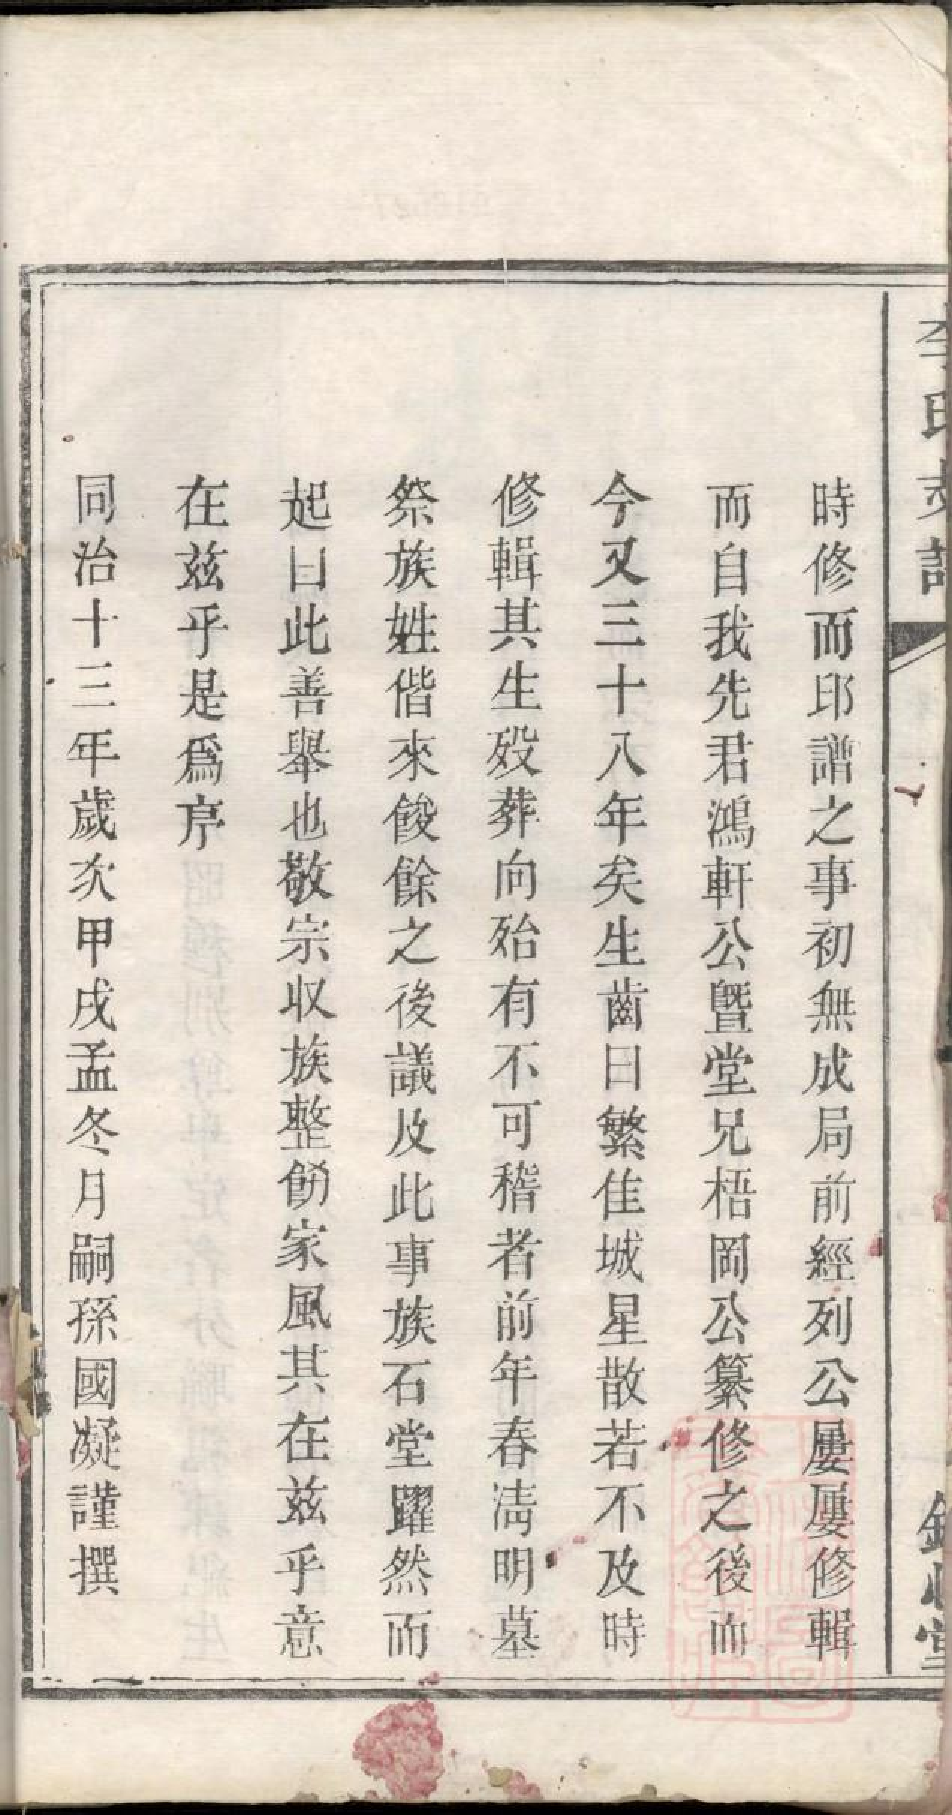 時修而邱譜之事初無成局前經列公屢屢修輯
而自我先君鴻軒公暨堂兄梧岡公纂修之後而
今又三十八年矣生齒日繁佳城星散若不及時
修輯其生殁葬向殆有不可稽者前年春清明墓
祭族姓偕來餕餘之後議及此事族石堂躍然而
起曰此善舉也敬宗収族整飭家風其在兹乎意
在兹乎是爲序
同治十三年歲次甲戌孟冬月嗣孫國凝謹撰